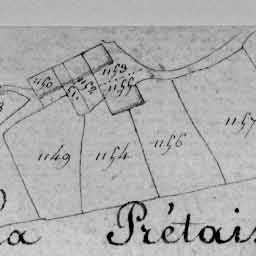 1153
1150
1152
1155
51
1149
1154
1156
1157
La Prétais